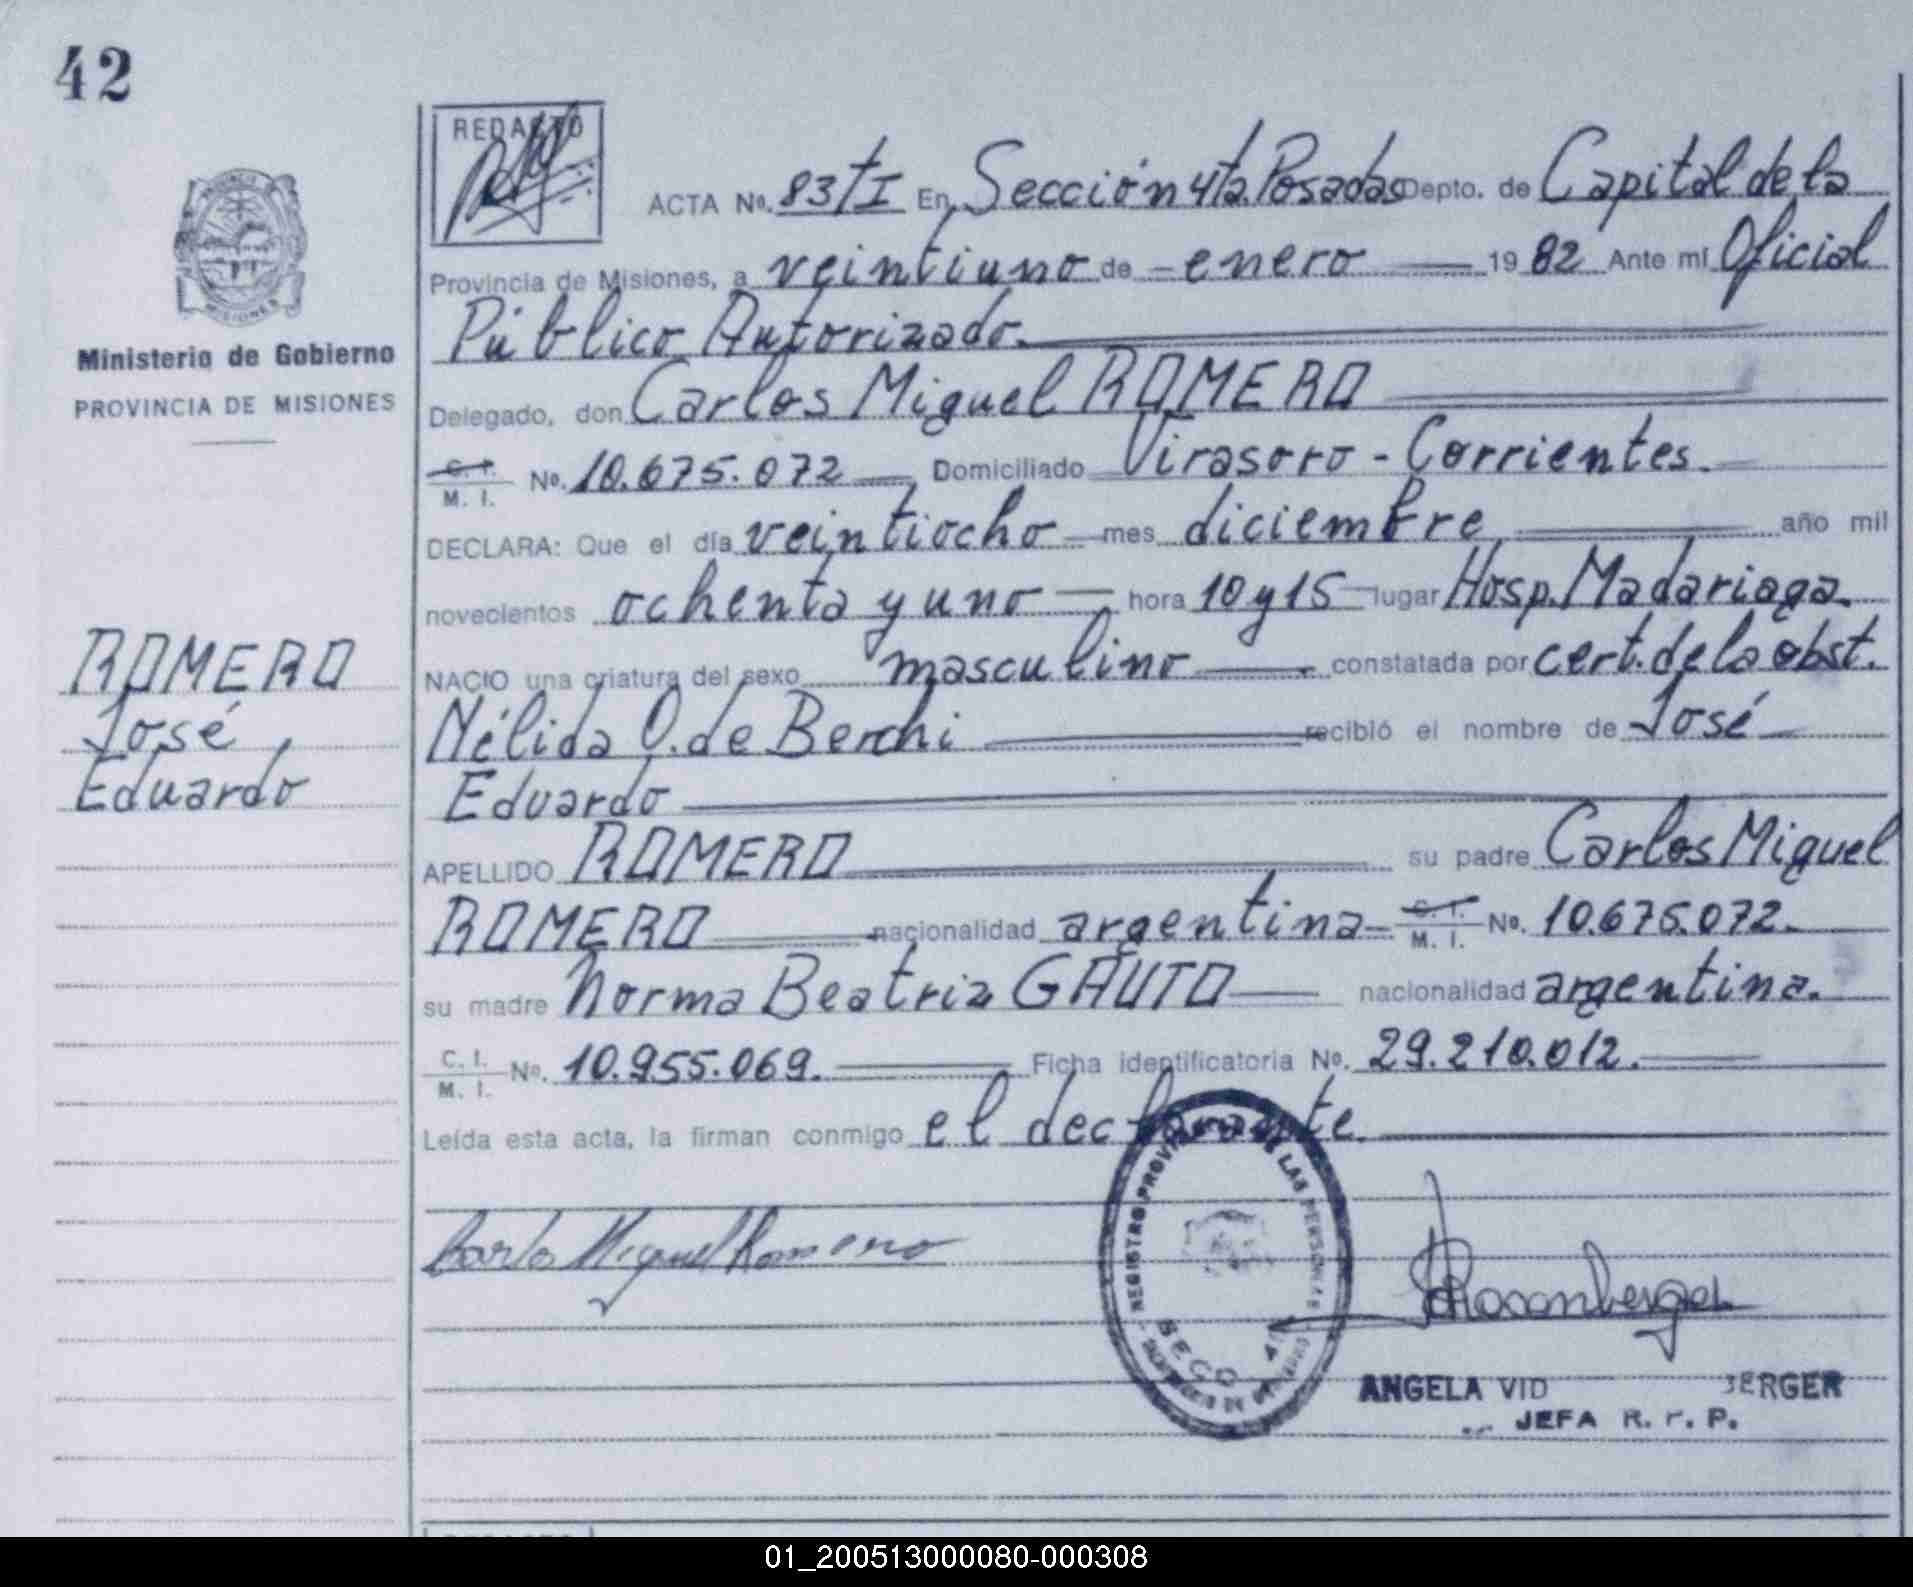 42
REDACTO
ACTA No. 83/I En Sección 4ta. Posadas Depto. de Capital de la
Provincia de Misiones, a veintiuno de enero 1982 Ante mí Oficial
Público Autorizado.
Delegado, don Carlos Miguel ROMERO
C. I. / M. I. No. 10.675.072 Domiciliado Virasoro - Corrientes.
DECLARA: Que el día veintiocho mes diciembre año mil
novecientos ochenta y uno hora 10 y 15 lugar Hosp. Madariaga.
NACIO una criatura del sexo masculino constatada por cert. de la obst.
Nélida O. de Berchi recibió el nombre de José
Eduardo
APELLIDO ROMERO su padre Carlos Miguel
ROMERO nacionalidad argentina C. I. / M. I. No. 10.675.072.
su madre Norma Beatriz GAUTO nacionalidad argentina.
C. I. / M. I. No. 10.955.069. Ficha identificatoria No. 29.210.012.
Leída esta acta, la firman conmigo el declarante.
Carlos Miguel Romero
ANGELA VID BERGER
JEFA R. P. P.
MISIONES
Ministerio de Gobierno
PROVINCIA DE MISIONES
ROMERO
José
Eduardo
REGISTRO PROVINCIAL DE LAS PERSONAS
SECC 4ta
01_200513000080-000308